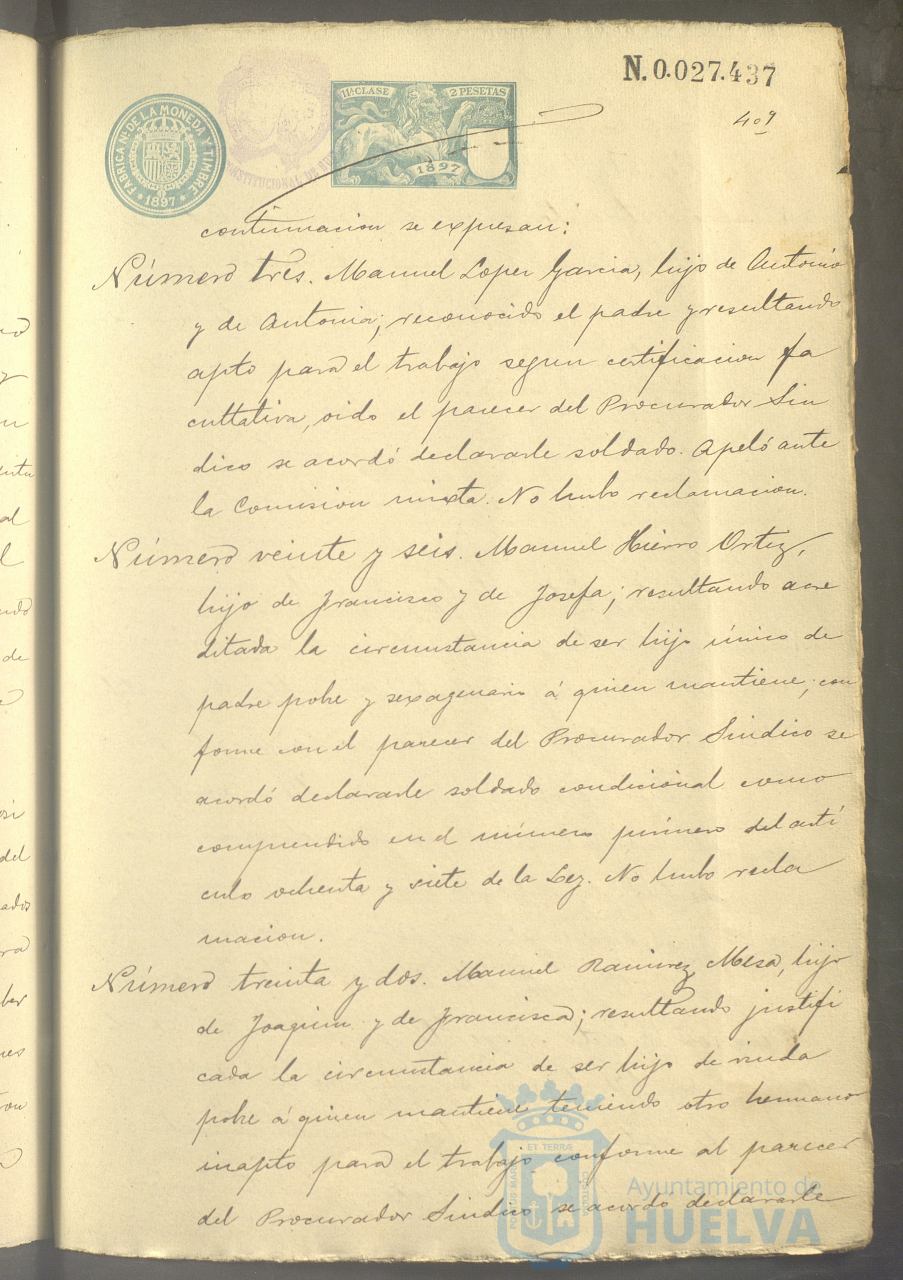 N. 0.027.437
409
FABRICA NL. DE LA MONEDA Y TIMBRE
* 1897 *
CONSTITUCIONAL DE
11ª CLASE
2 PESETAS
1897
continuacion se expresan:
Número tres. Manuel Lopez Garcia, hijo de Antonio
y de Antonia; reconocido el padre y resultando
apto para el trabajo segun certificacion fa
cultativa, oido el parecer del Procurador Sin
dico se acordó declararle soldado. Apeló ante
la Comision mixta. No hubo reclamacion.
Número veinte y seis. Manuel Hierro Ortiz,
hijo de Francisco y de Josefa; resultando acre
ditada la circunstancia de ser hijo único de
padre pobre y sexagenario á quien mantiene; con
forme con el parecer del Procurador Sindico se
acordó declararle soldado condicional como
comprendido en el número primero del artí
culo ochenta y siete de la Ley. No hubo recla
macion.
Número treinta y dos. Manuel Ramirez Mesa, hijo
de Joaquin y de Francisca; resultando justifi
cada la circunstancia de ser hijo de viuda
pobre á quien mantiene teniendo otro hermano
inapto para el trabajo conforme al parecer
del Procurador Sindico se acordó declararle
PORTUS MARIS ET TERRÆ CUSTODIA
Ayuntamiento de
HUELVA